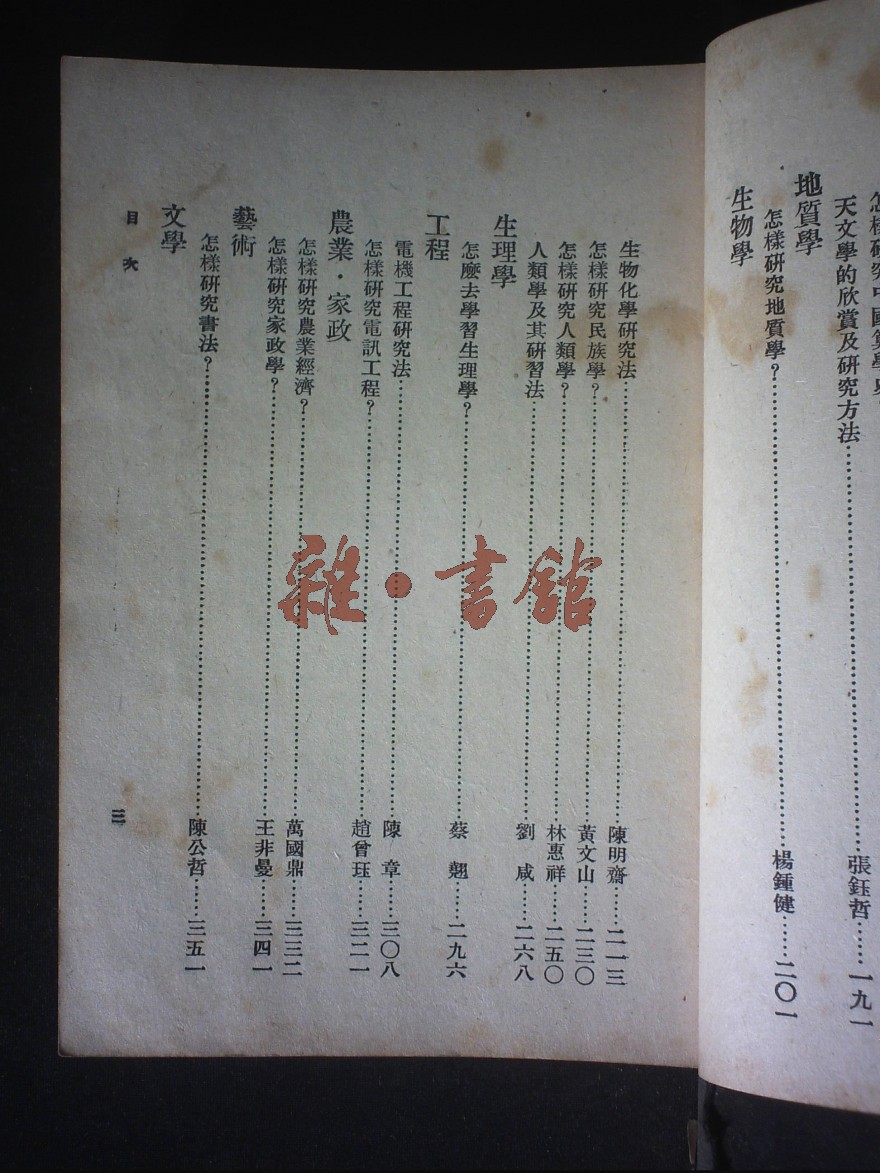 怎樣研究中國算學史
天文學的欣賞及研究方法……張鈺哲……一九一
地質學
怎樣研究地質學?……楊鍾健……二〇一
生物學
生物化學研究法……陳明齋……二一三
怎樣研究民族學?……黃文山……二三〇
怎樣研究人類學?……林惠祥……二五〇
人類學及其研習法……劉咸……二六八
生理學
怎麼去學習生理學?……蔡翹……二九六
工程
電機工程研究法……陳章……三〇八
怎樣研究電訊工程?……趙曾珏……三二一
農業・家政
怎樣研究農業經濟?……萬國鼎……三三二
怎樣研究家政學?……王非曼……三四一
藝術
怎樣研究書法?……陳公哲……三五一
文學
目次
三
雜・書館